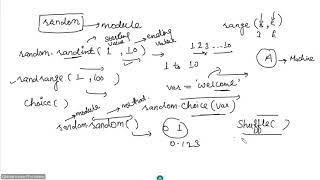 random → module
starting value
ending value
random.randint ( 1 , 10 )
range ( 1, 6 )
1 2 3 ... 10
1 to 10
A → Machine
randrange ( 1 , 100 )
var = 'welcome'
choice ( )
random.choice (var)
module
method
random.random ( ) → 0 1
0.123
Shuffle ( )